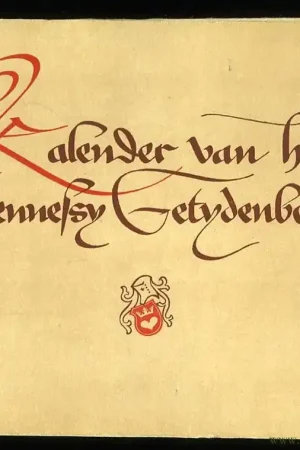 Kalender van h
ennessy Getydenbo